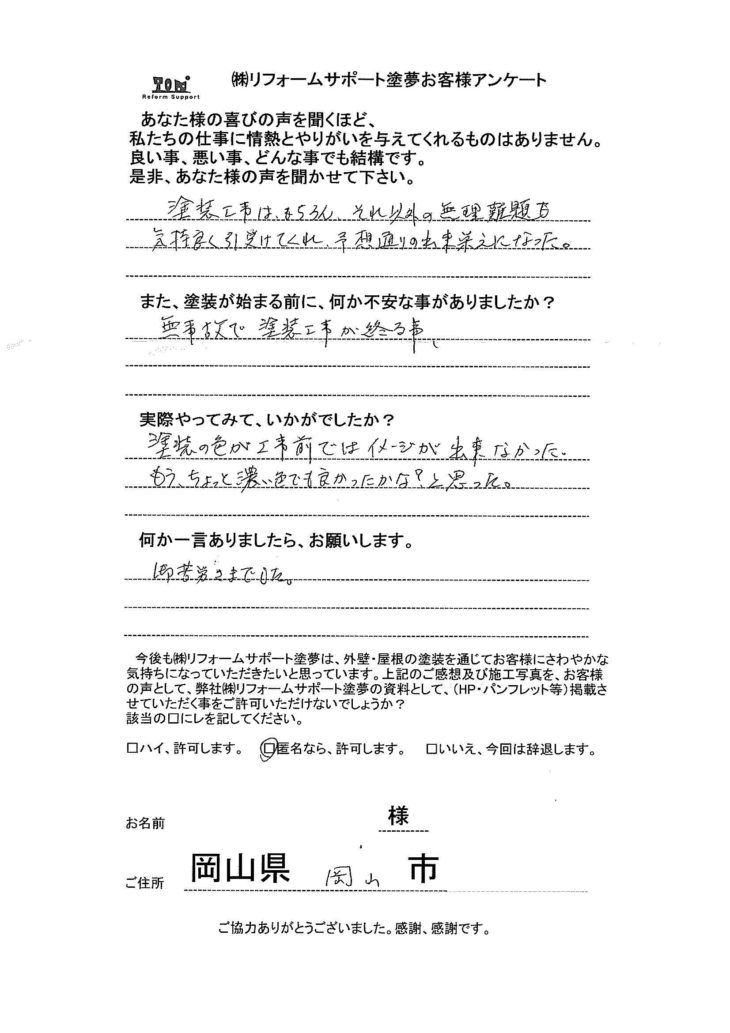 TOM
Reform Support
㈱リフォームサポート塗夢お客様アンケート
あなた様の喜びの声を聞くほど、
私たちの仕事に情熱とやりがいを与えてくれるものはありません。
良い事、悪い事、どんな事でも結構です。
是非、あなた様の声を聞かせて下さい。
塗装工事は、もちろん、それ以外の無理難題も
気持良く引受けてくれ、予想通りの出来栄えになった。
また、塗装が始まる前に、何か不安な事がありましたか？
無事故で塗装工事が終る事、
実際やってみて、いかがでしたか？
塗装の色が工事前ではイメージが出来なかった。
もう、ちょっと濃い色でも良かったかな？と思った。
何か一言ありましたら、お願いします。
御苦労さまでした。
今後も㈱リフォームサポート塗夢は、外壁・屋根の塗装を通じてお客様にさわやかな
気持ちになっていただきたいと思っています。上記のご感想及び施工写真を、お客様
の声として、弊社㈱リフォームサポート塗夢の資料として、（HP・パンフレット等）掲載さ
せていただく事をご許可いただけないでしょうか？
該当の□にレを記してください。
□ハイ、許可します。 □匿名なら、許可します。 □いいえ、今回は辞退します。
お名前 様
ご住所 岡山県 岡山 市
ご協力ありがとうございました。感謝、感謝です。